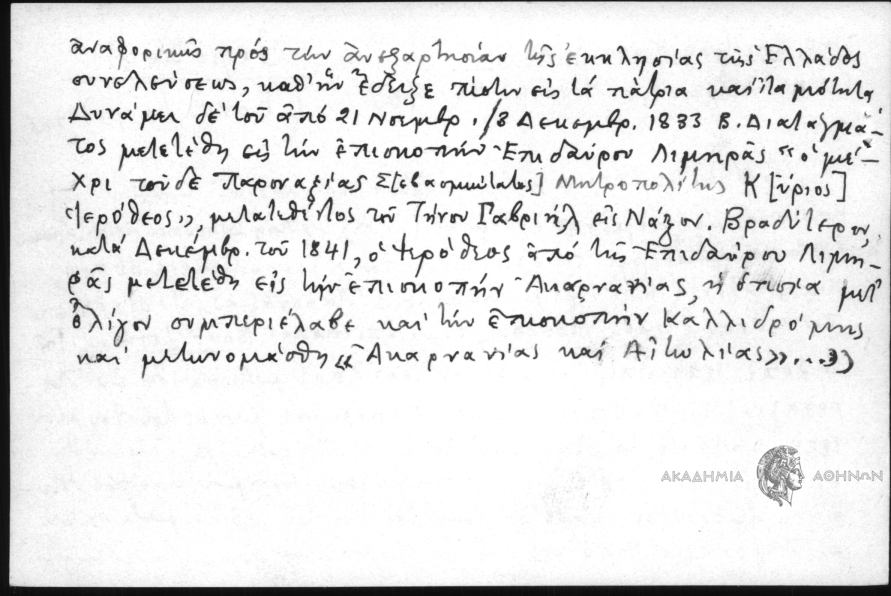 ἀναφορικῆς πρός τήν ἀνεξαρτησίαν τῆς ἐκκλησίας τῆς Ἑλλάδος
συνελεύσεως, καθ' ἥν ἔδειξε πίστιν εἰς τά πάτρια καί
Δυνάμει δέ τοῦ ἀπό 21 Νοεμβρ./3 Δεκεμβρ. 1833 Β. Διατάγμα-
τος μετετέθη εἰς τήν ἐπισκοπήν Ἐπιδαύρου Λιμηρᾶς "ὁ μέ-
χρι τοῦδε Παροναξίας Σ[εβασμιώτατος] Μητροπολίτης Κ[ύριος]
Ἱερόθεος», μετατεθέντος τοῦ Τήνου Γαβριήλ εἰς Νάξον. Βραδύτερον,
κατά Δεκέμβρ. τοῦ 1841, ὁ Ἱερόθεος ἀπό τῆς Ἐπιδαύρου Λιμη-
ρᾶς μετετέθη εἰς τήν ἐπισκοπήν Ἀκαρνανίας, ἡ ὁποία μετ'
ὀλίγον συμπεριέλαβε καί τήν ἐπισκοπήν Καλλιδρόμης
καί μετωνομάσθη «Ἀκαρνανίας καί Αἰτωλίας»...»)
ΑΚΑΔΗΜΙΑ ΑΘΗΝΩΝ